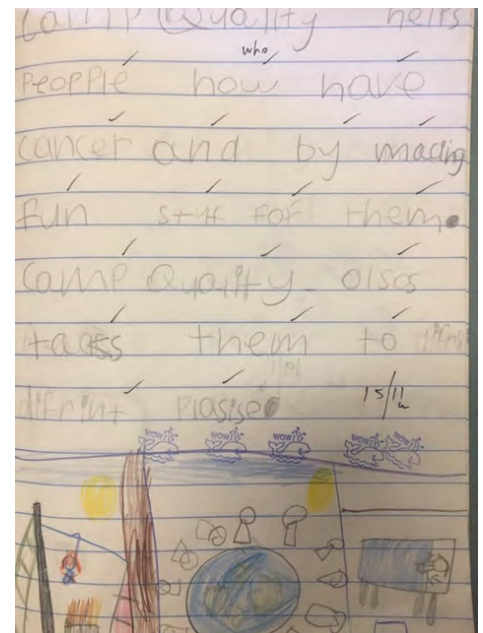 Camp Quality helps
who
People how have
cancer and by mading
fun stuf for them.
Camp Quality olsos
taces them to
difrint plasise
15/11
WOW! WOW! WOW! WOW! WOW!